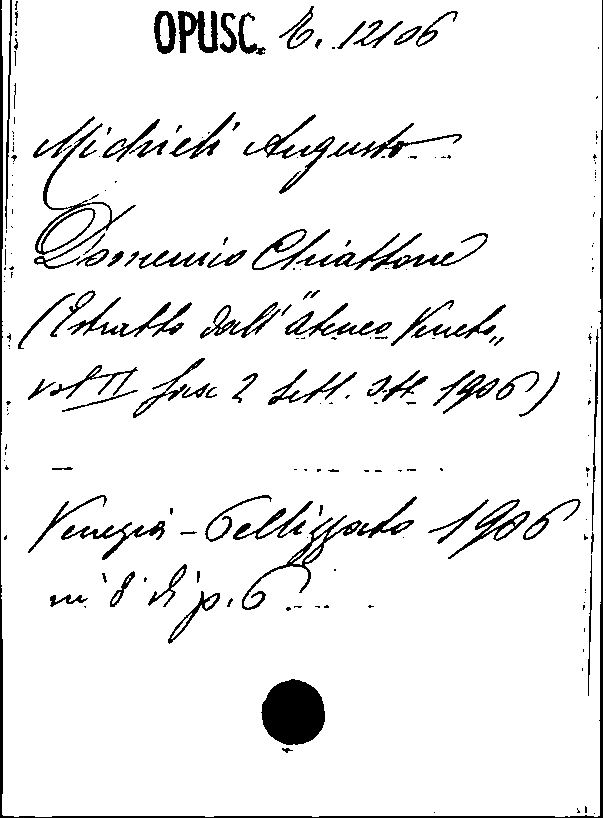 OPUSC. E. 12106
Michieli Augusto
Domenico Chiattone
(Estratto dall' "Ateneo Veneto„
vol II fasc 2 sett. ott. 1906)
Venezia - Pellizzato 1906
in 8° di p. 6